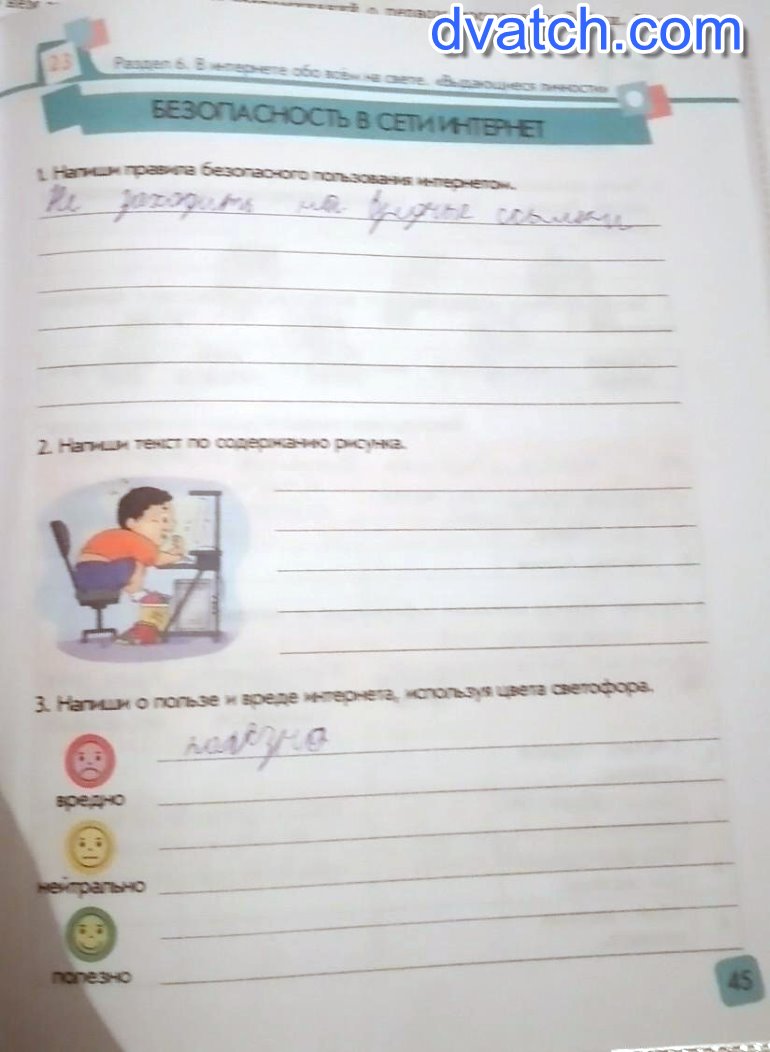 dvatch.com
23
Раздел 6. В интернете обо всём на свете. «Выдающиеся личности»
БЕЗОПАСНОСТЬ В СЕТИ ИНТЕРНЕТ
1. Напиши правила безопасного пользования интернетом.
Не заходить на вредные ссылки
2. Напиши текст по содержанию рисунка.
3. Напиши о пользе и вреде интернета, используя цвета светофора.
полезно
вредно
нейтрально
полезно
45